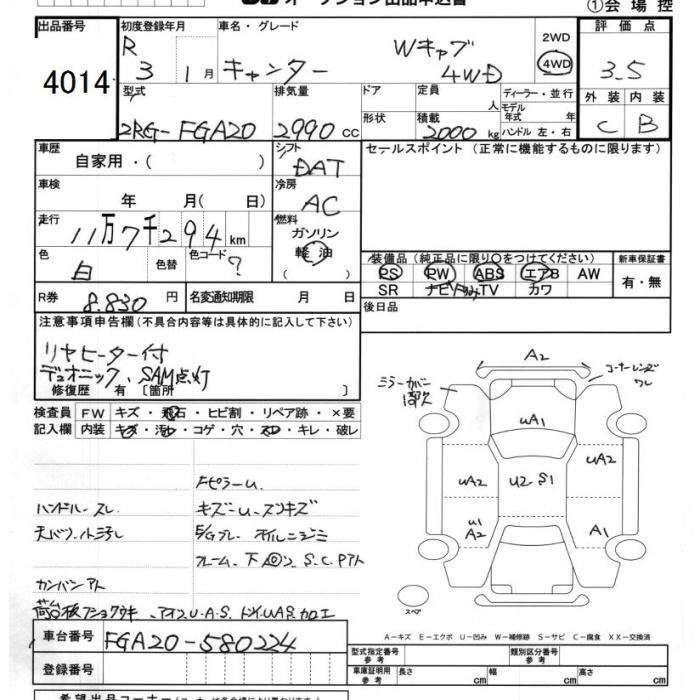 ①会場控
出品番号 4014
初度登録年月 R 3 1月
車名・グレード キャンター Wキャブ 4WD
2WD 4WD
評価点 3.5
型式 2RG-FGA20
排気量 2990 cc
ドア 形状
定員 人
積載 2000 kg
ディーラー・並行
モデル年式 年
ハンドル 左・右
外装 C 内装 B
車歴 自家用・( )
シフト DAT
セールスポイント (正常に機能するものに限ります)
車検 年 月(日)
冷房 AC
走行 11万7千294km
燃料 ガソリン 軽油 ( )
色 白 色替 色コード ?
装備品 (純正品に限り〇をつけてください)
PS PW ABS エアB AW
SR ナビ TV カワ
新車保証書 有・無
R券 8.830円
名変通知期限 月 日
後日品
注意事項申告欄 (不具合内容等は具体的に記入して下さい)
リヤヒーター付
デュオニック、SAM点灯
修復歴 有〔箇所 〕
検査員記入欄
FW キズ・飛石・ヒビ割・リペア跡・×要
内装 キズ・汚れ・コゲ・穴・スレ・キレ・破レ
Fピラーu
ハンドルスレ キズーu
フレーム、下回 S.C.Pアト
カンバンアト
車台番号 FGA20-580224
登録番号
A2
ミラーカバー
コーナーレンズ
ワレ
uA1
uA2 U2 S1 uA2
u1
A2 A1
スペア
A-キズ E-エクボ U-凹み W-補修跡 S-サビ C-腐食 XX-交換済
型式指定番号 参考 類別区分番号 参考
車庫証明用 参考 長さ cm 幅 cm 高さ cm